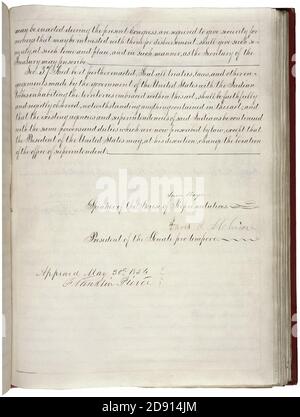 may be enacted during the present Congress, are required to give security for
moneys that may be intrusted with them for disbursement, shall give such se-
curity, at such time and place, and in such manner, as the Secretary of the
Treasury may prescribe.
Sec. 37. And be it further enacted, That all treaties, laws, and other en-
gagements made by the government of the United States with the Indian
tribes inhabiting the territories embraced within this act, shall be faithfully
and rigidly observed, notwithstanding anything contained in this act; and
that the existing agencies and superintendencies of said Indians be continued
with the same powers and duties which are now prescribed by law, except that
the President of the United States may, at his discretion, change the location
of the office of superintendent.
Speaker of the House of Representatives
President of the Senate pro tempore
Approved May 30th 1854
Franklin Pierce
alamy
Image ID: 2D914JM
www.alamy.com